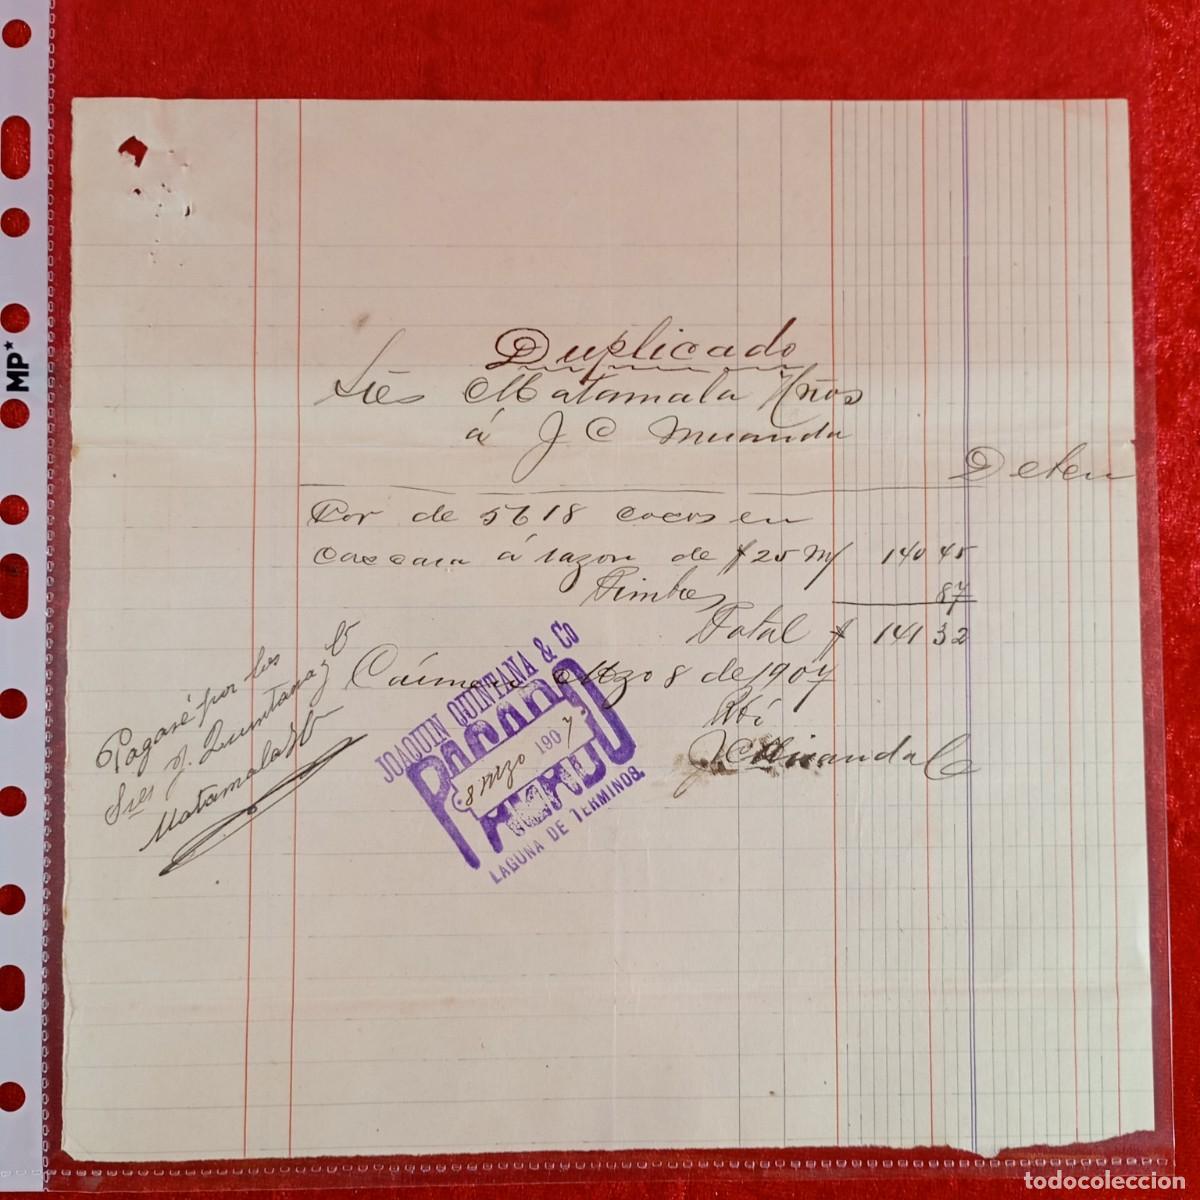 Duplicado
Sres Matamala Hnos
á J C Miranda
Deben
Por de 5618 cocos en
cascara á razon de $25 M/ 140 45
Timbres 87
Total $ 141 32
Marzo 8 de 1907
Rbí
J C Miranda
Pagaré por los
Sres J. Quintana y Co
Matamala
JOAQUIN QUINTANA & Co
PAGADO
8 Mzo 1907
LAGUNA DE TERMINOS.
MP*
todocoleccion